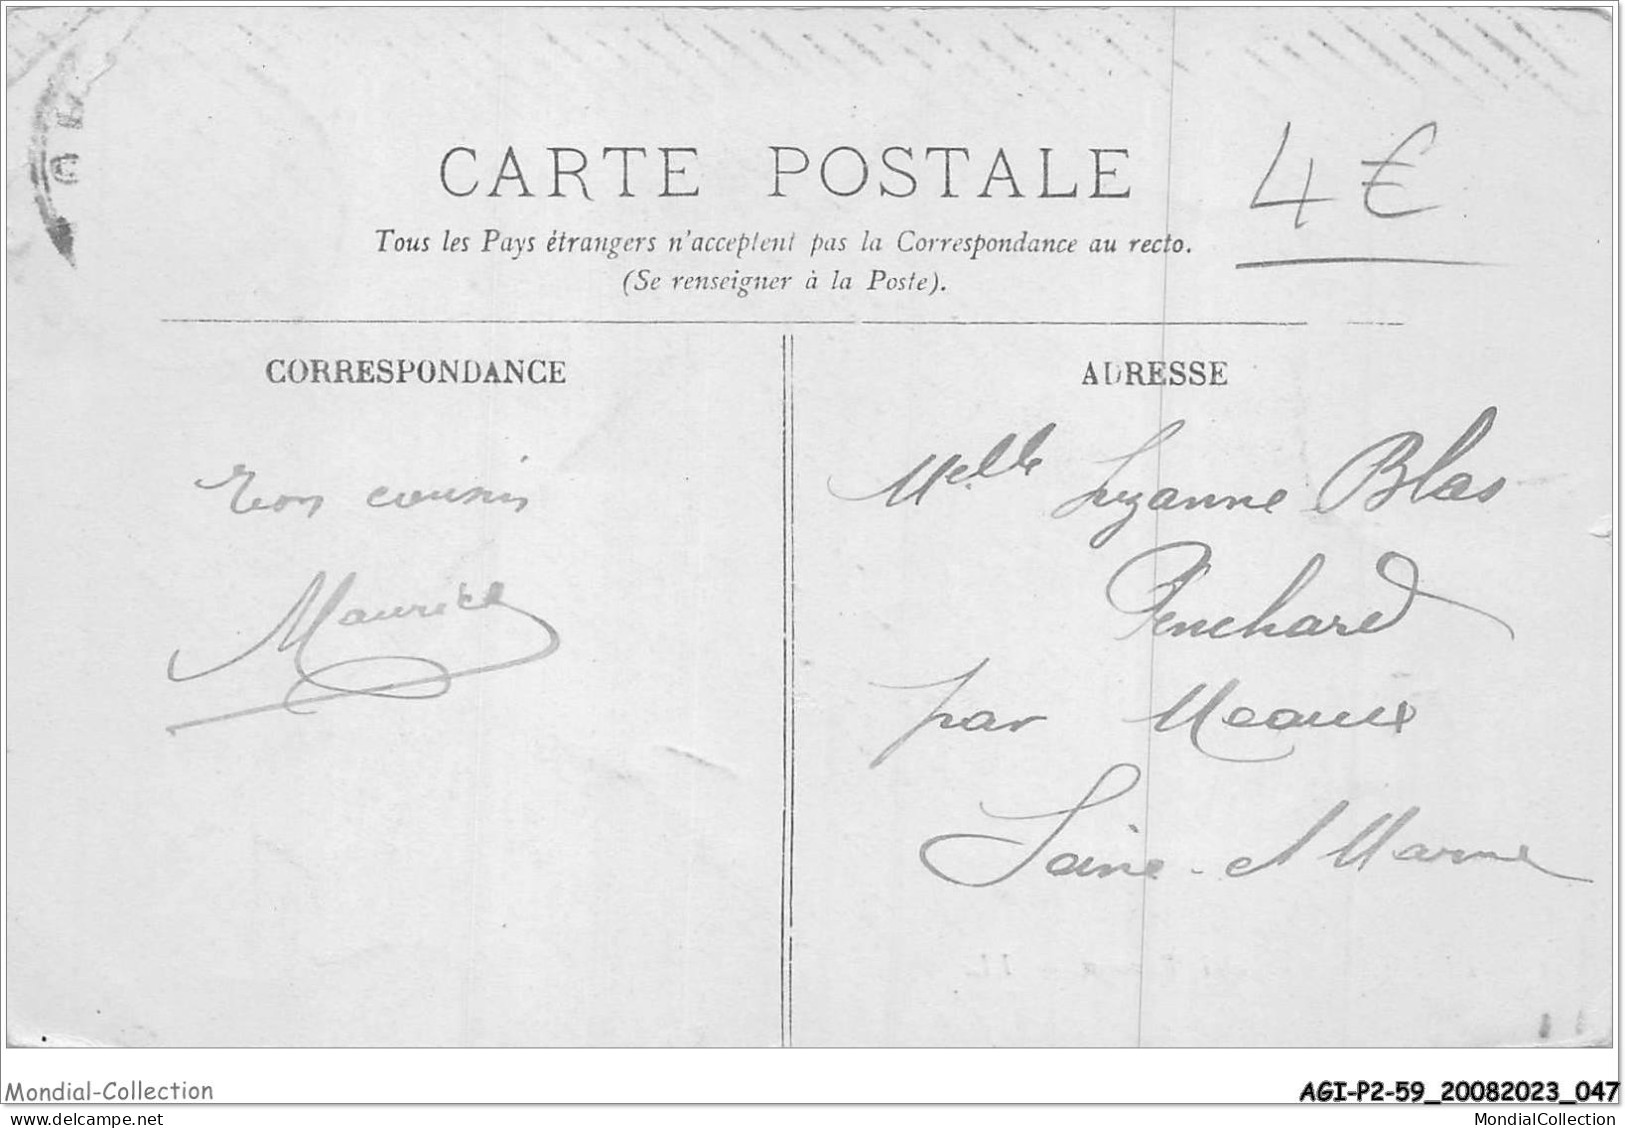 CARTE POSTALE
4€
Tous les Pays étrangers n'acceptent pas la Correspondance au recto.
(Se renseigner à la Poste).
CORRESPONDANCE
Ton cousin
Maurice
ADRESSE
Melle Suzanne Blas
Penchard
par Meaux
Seine et Marne
Mondial-Collection
AGI-P2-59_20082023_047
MondialCollection